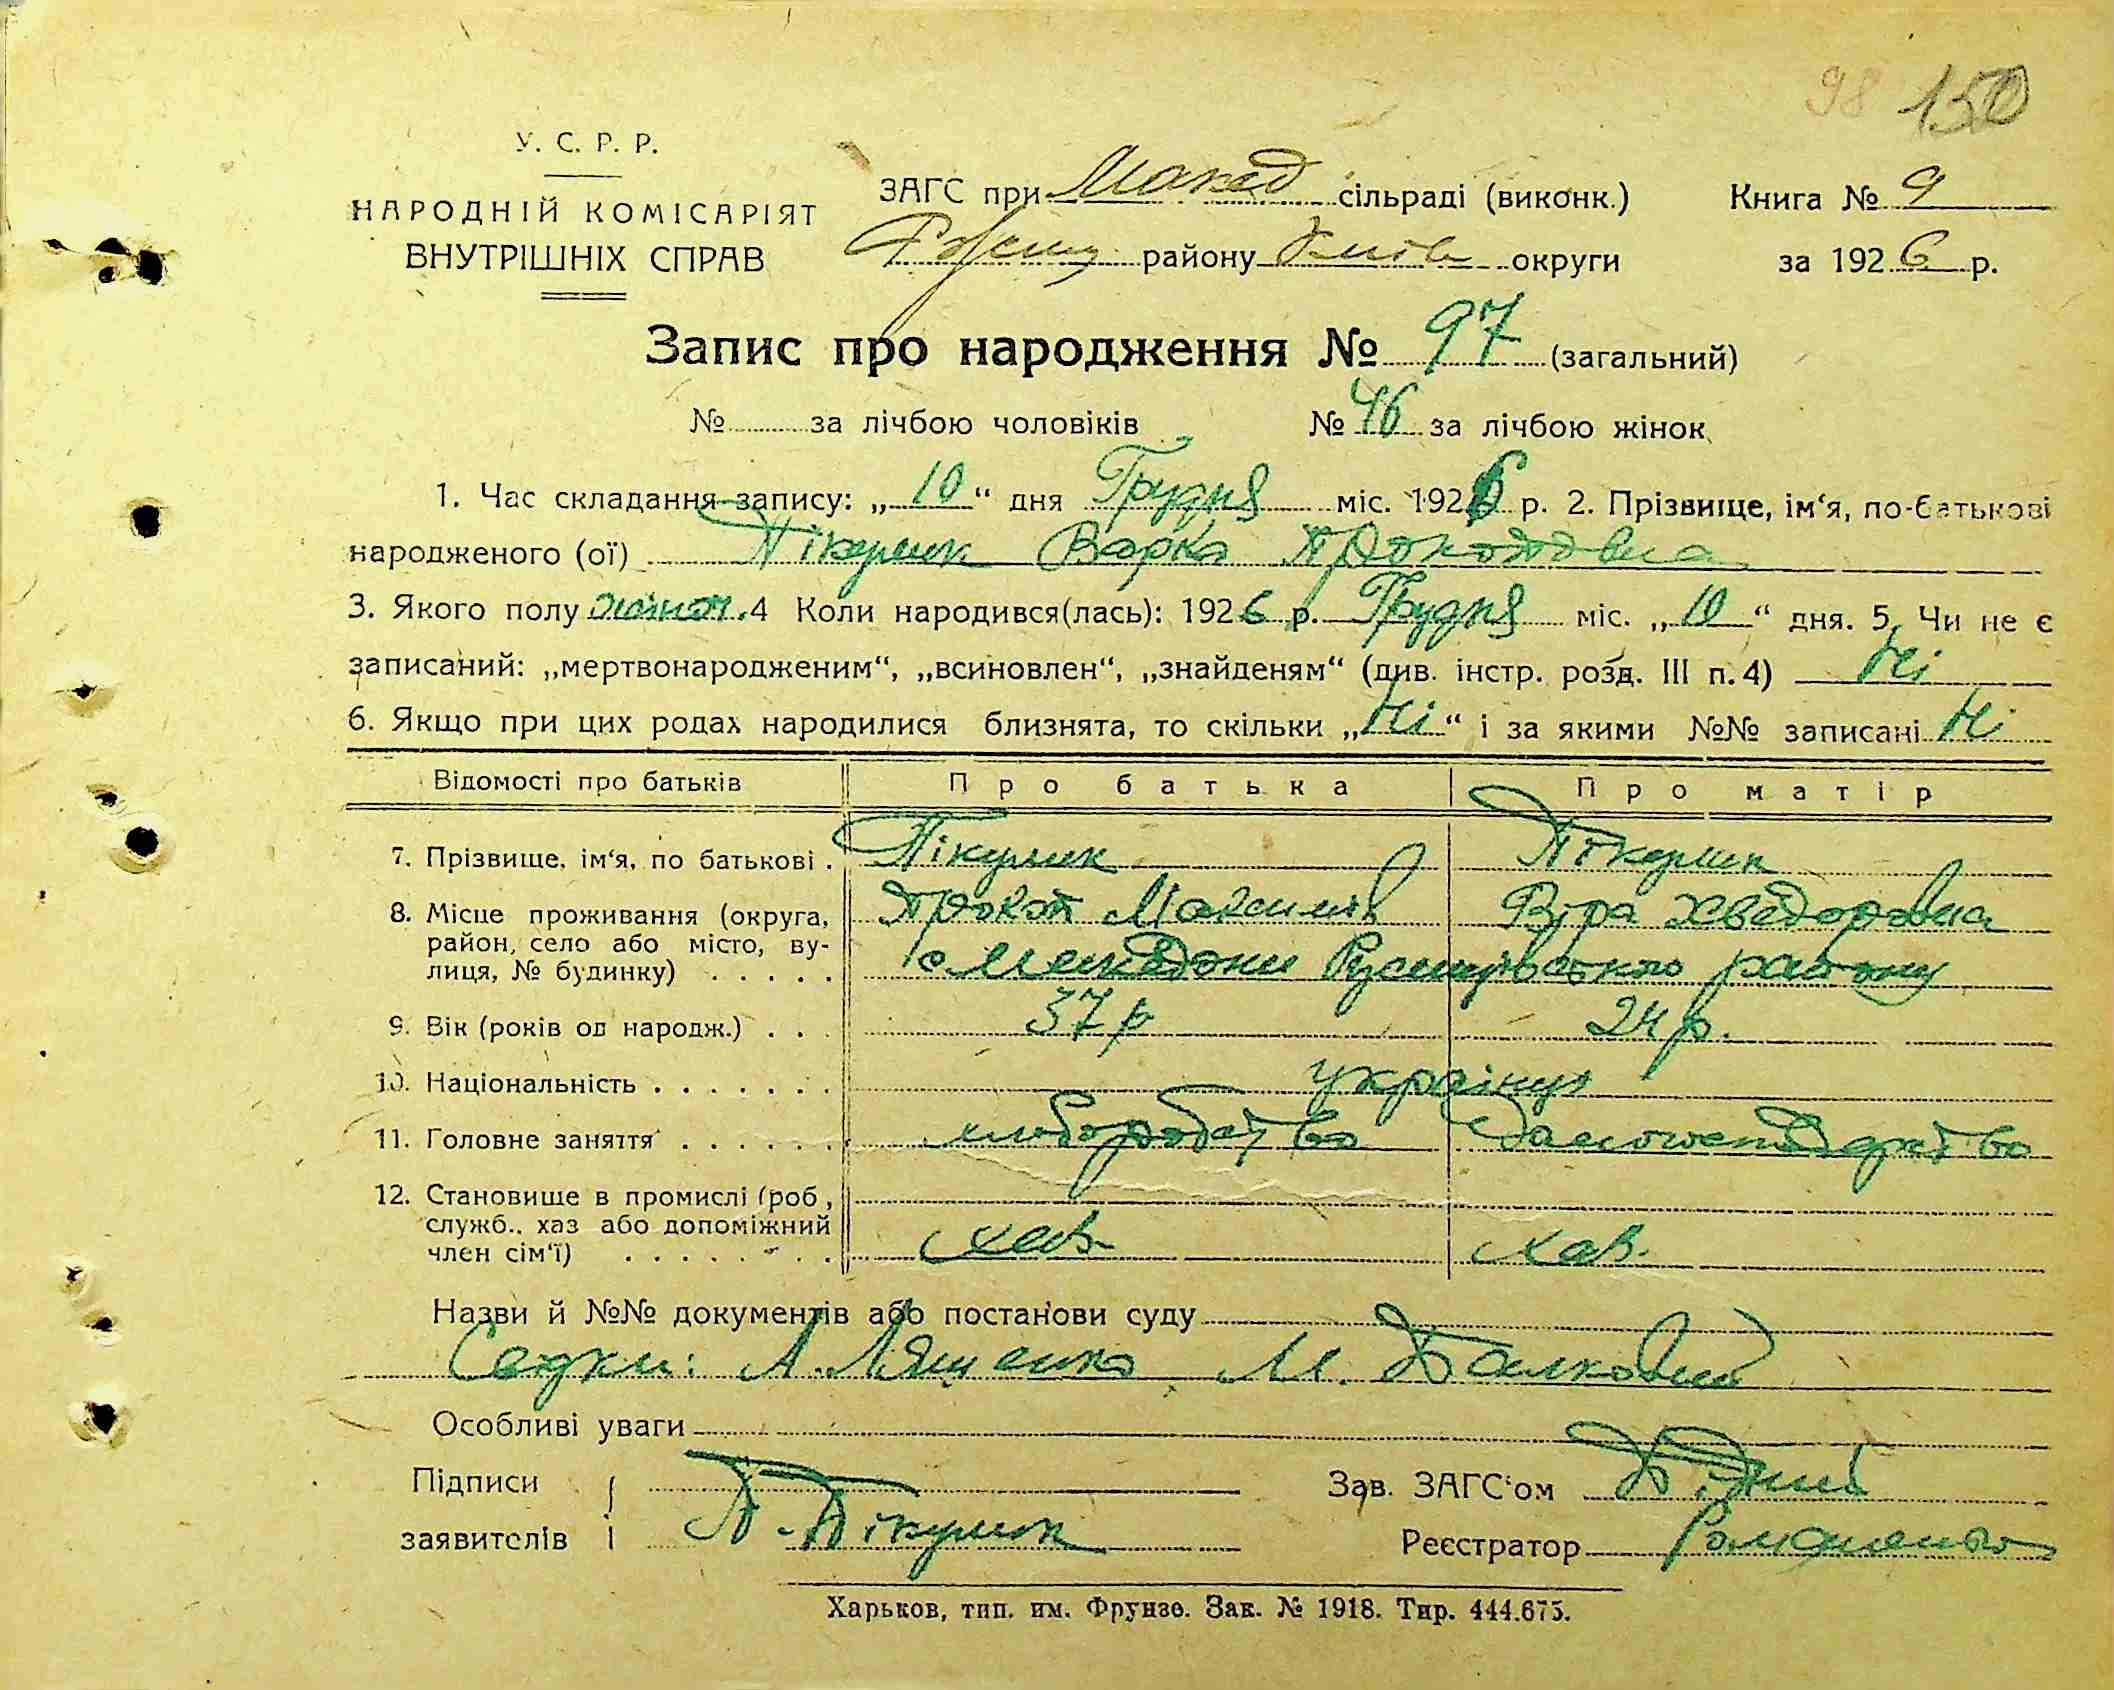 98 150
У. С. Р. Р.
НАРОДНІЙ КОМІСАРІЯТ
ВНУТРІШНІХ СПРАВ
ЗАГС при Макед сільраді (виконк.)
району Київ округи
Книга № 9
за 1926 р.
Запис про народження № 97 (загальний)
№ за лічбою чоловіків № 46 за лічбою жінок
1. Час складання запису: „10“ дня Грудня міс. 1926 р. 2. Прізвище, ім‘я, по-батькові
народженого (ої) Пікулик Варка Прокоповна
3. Якого полу жіноч. 4 Коли народився(лась): 1926 р. Грудня міс. „10“ дня. 5. Чи не є
записаний: „мертвонародженим“, „всиновлен“, „знайденям“ (див. інстр. розд. III п. 4) Ні
6. Якщо при цих родах народилися близнята, то скільки „Ні“ і за якими №№ записані Ні
Відомості про батьків Про батька Про матір
7. Прізвище, ім‘я, по батькові . Пікулик Пікулик
Прокоп Максимів Віра Хведоровна
8. Місце проживання (округа,
район, село або місто, ву-
лиця, № будинку) . . . . . с Македони району
9. Вік (років од народж.) . . . 37 р 24 р.
10. Національність . . . . . . . українці
11. Головне заняття . . . . . . хлоборобство Домогосподарство
12. Становище в промислі (роб,
служб., хаз або допоміжний
член сім‘ї) . . . . . . . . хаз. хаз.
Назви й №№ документів або постанови суду
Свідки: А. Ляшенко М. Балковий
Особливі уваги
Підписи
заявителів П. Пікулик
Зав. ЗАГС‘ом Бідний
Реєстратор Ромащенко
Харьков, тип. им. Фрунзе. Зак. № 1918. Тир. 444.675.